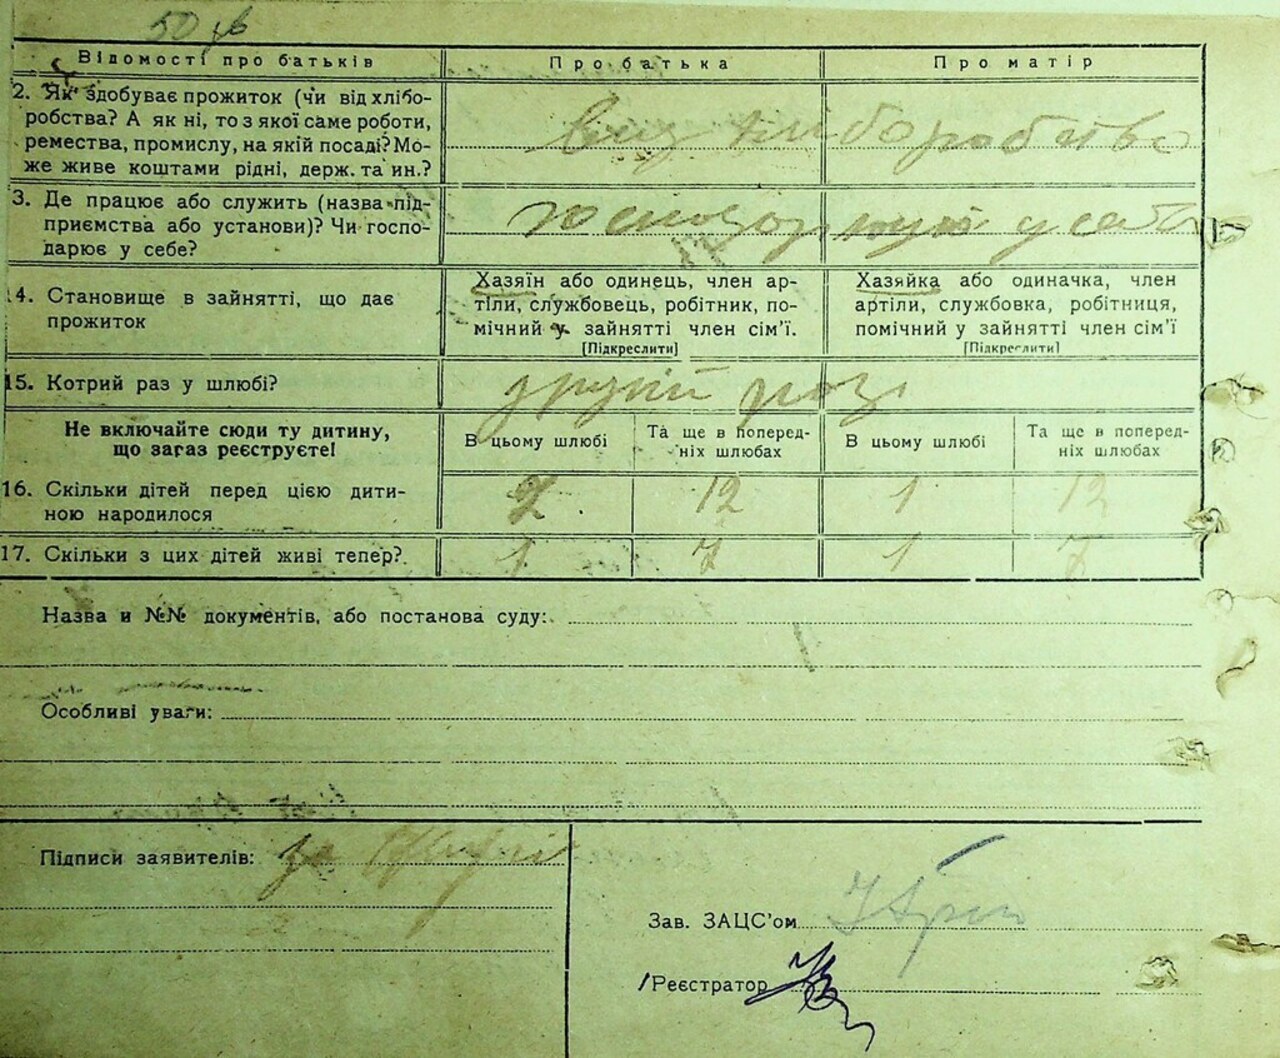 50
Відомості про батьків Про батька Про матір
2. Як здобуває прожиток (чи від хлібо-
робства? А як ні, то з якої саме роботи,
ремества, промислу, на якій посаді? Мо-
же живе коштами рідні, держ. та ин.?
від хліборобства
3. Де працює або служить (назва під-
приємства або установи)? Чи госпо-
дарює у себе?
у себе
14. Становище в зайнятті, що дає
прожиток
Хазяїн або одинець, член ар-
тіли, службовець, робітник, по-
мічний у зайнятті член сім'ї.
[Підкреслити]
Хазяйка або одиначка, член
артіли, службовка, робітниця,
помічний у зайнятті член сім'ї
[Підкреслити]
15. Котрий раз у шлюбі? другий раз
Не включайте сюди ту дитину,
що зараз реєструєте!
В цьому шлюбі
Та ще в поперед-
ніх шлюбах
В цьому шлюбі
Та ще в поперед-
ніх шлюбах
16. Скільки дітей перед цією дити-
ною народилося
2 12 1 12
17. Скільки з цих дітей живі тепер? 1 7 1 7
Назва и №№ документів, або постанова суду:
Особливі уваги:
Підписи заявителів:
Зав. ЗАЦС'ом
Реєстратор